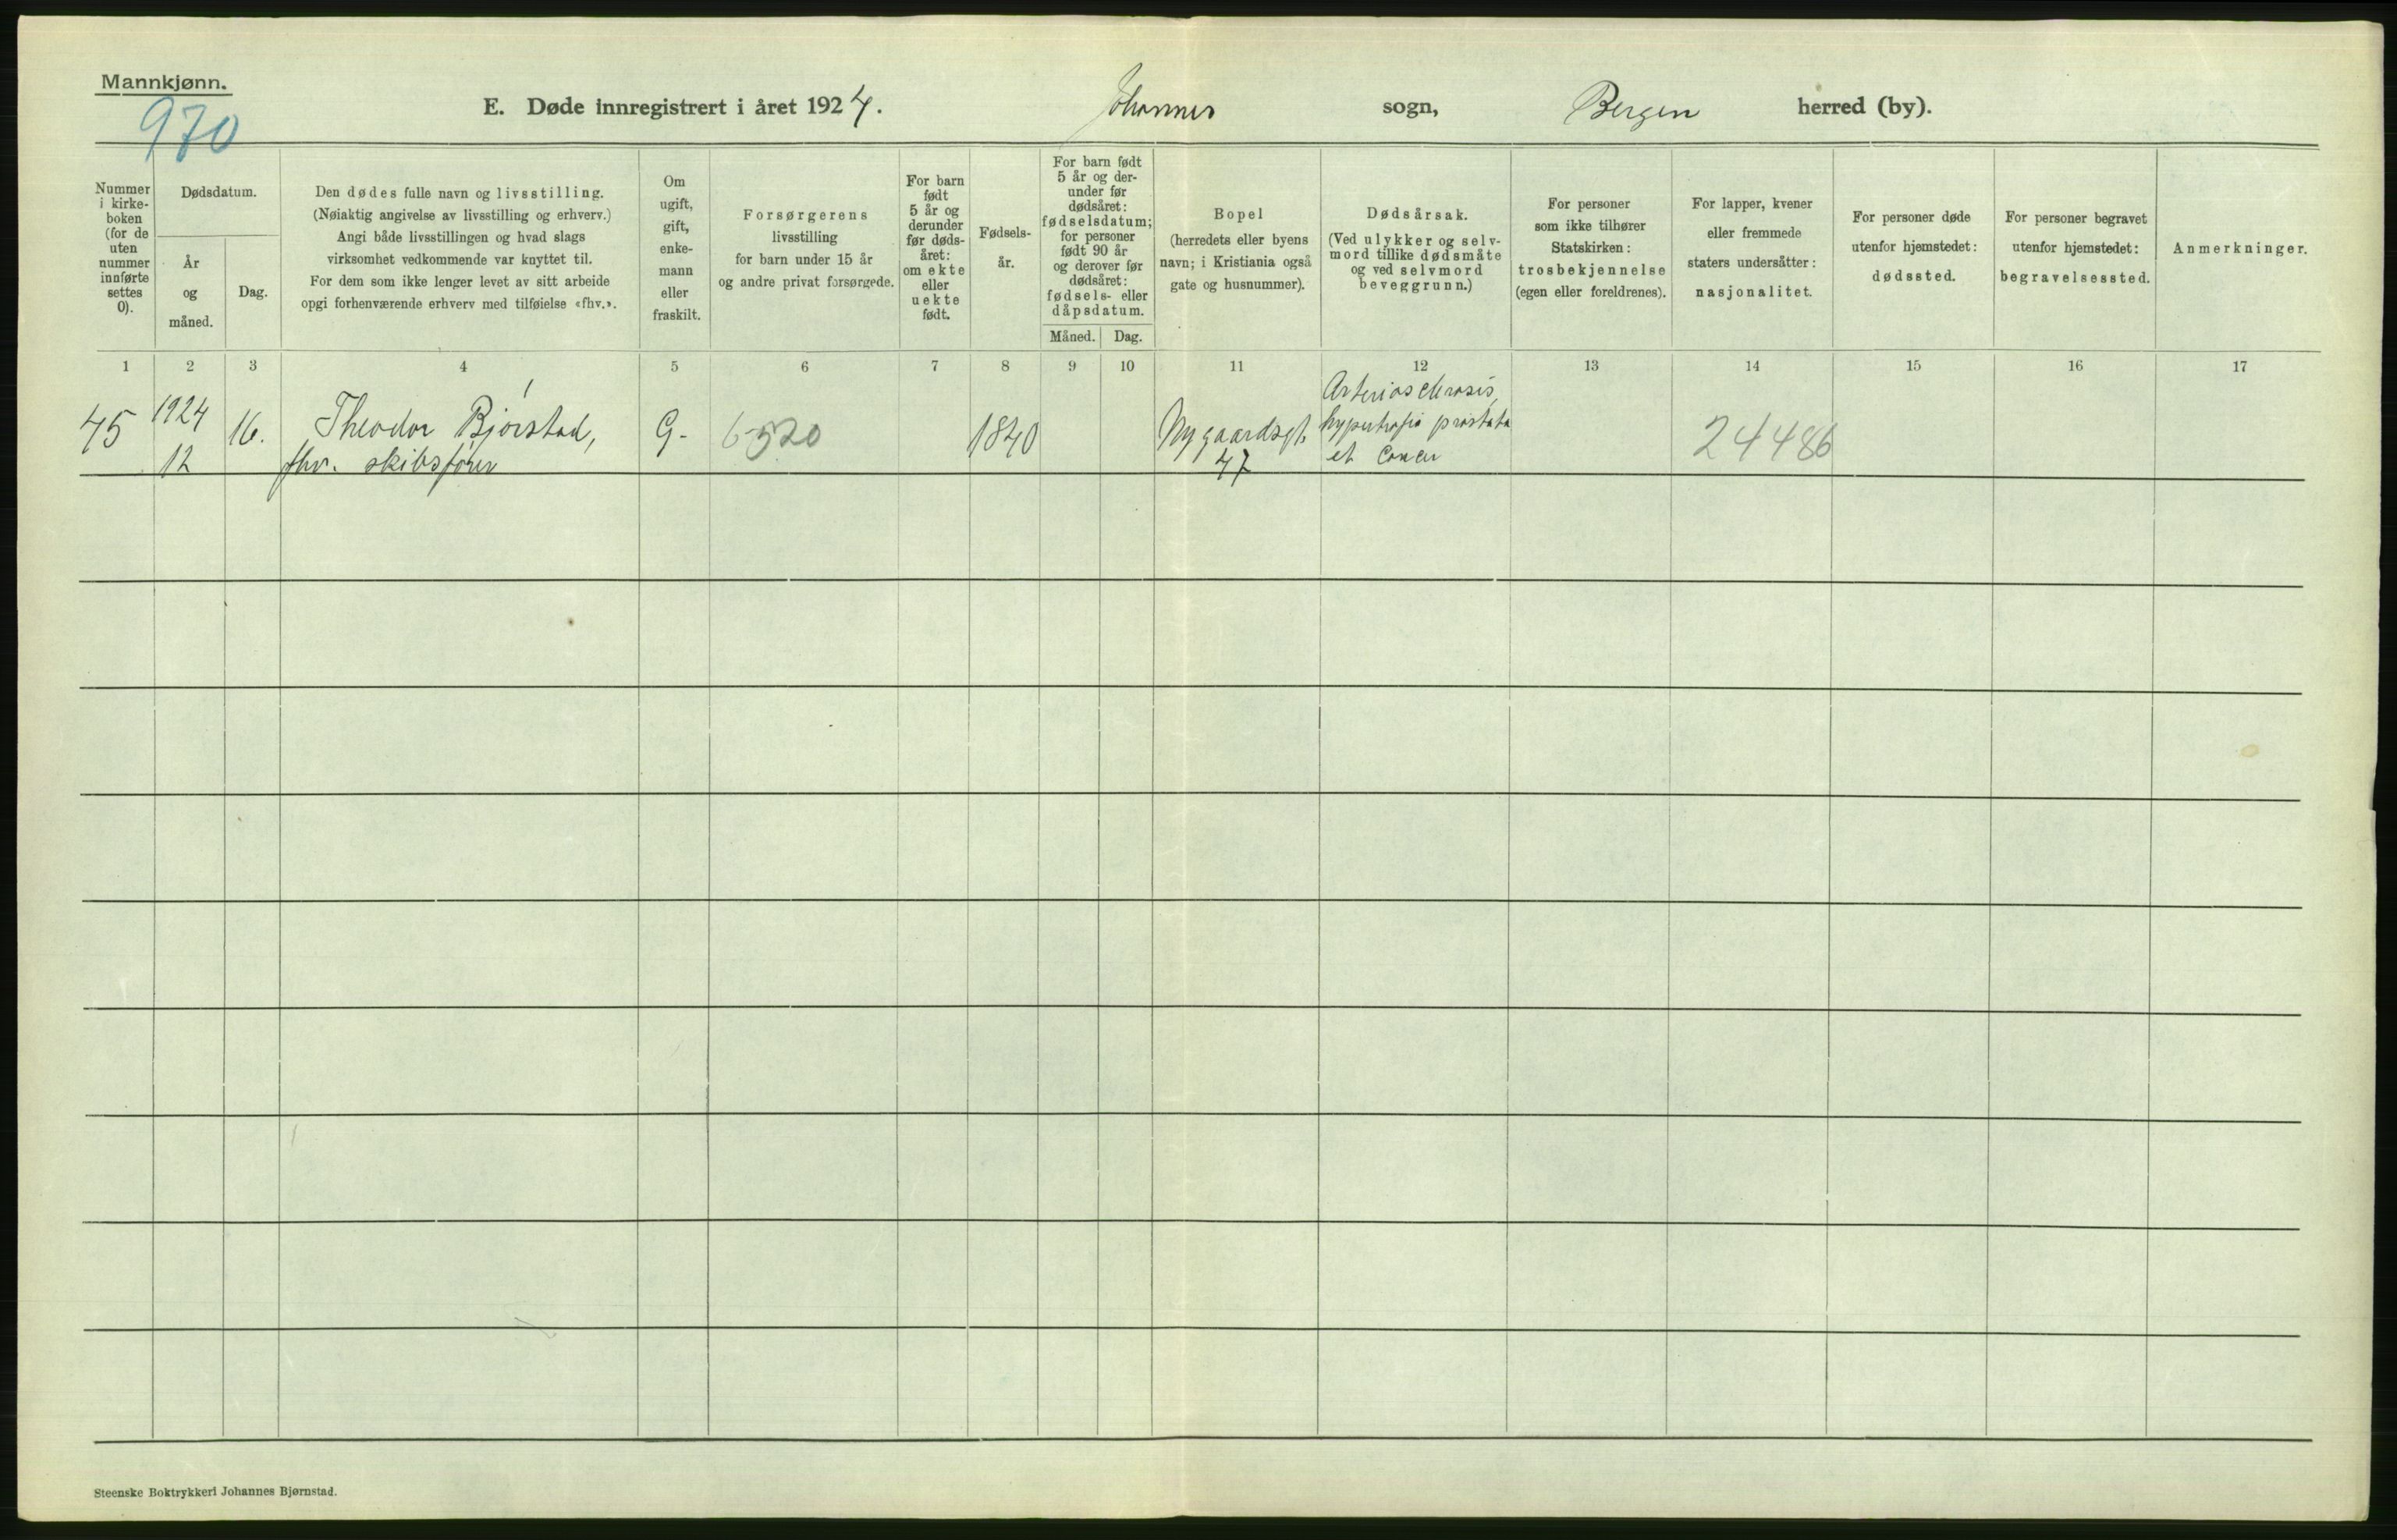 Mannkjønn.
970
E. Døde innregistrert i året 1924. Johannes sogn, Bergen herred (by).
Nummer
i kirke-
boken
(for de
uten
nummer
innførte
settes
0).
Dødsdatum.
År
og
måned.
Dag.
Den dødes fulle navn og livsstilling.
(Nøiaktig angivelse av livsstilling og erhverv.)
Angi både livsstillingen og hvad slags
virksomhet vedkommende var knyttet til.
For dem som ikke lenger levet av sitt arbeide
opgi forhenværende erhverv med tilføielse «fhv.».
Om
ugift,
gift,
enke-
mann
eller
fraskilt.
Forsørgerens
livsstilling
for barn under 15 år
og andre privat forsørgede.
For barn
født
5 år og
derunder
før døds-
året:
om ekte
eller
uekte
født.
Fødsels-
år.
For barn født
5 år og der-
under før
dødsåret:
fødselsdatum;
for personer
født 90 år
og derover før
dødsåret:
fødsels- eller
dåpsdatum.
Måned. Dag.
Bopel
(herredets eller byens
navn; i Kristiania også
gate og husnummer).
Dødsårsak.
(Ved ulykker og selv-
mord tillike dødsmåte
og ved selvmord
beveggrunn.)
For personer
som ikke tilhører
Statskirken:
trosbekjennelse
(egen eller foreldrenes).
For lapper, kvener
eller fremmede
staters undersåtter:
nasjonalitet.
For personer døde
utenfor hjemstedet:
dødssted.
For personer begravet
utenfor hjemstedet:
begravelsessted.
Anmerkninger.
1 2 3 4 5 6 7 8 9 10 11 12 13 14 15 16 17
45
1924
12
16.
Theodor Bjørstad,
fhv. skibsfører
G-
6520
1840
Nygaardsgt.
47
Arteriosclerosis,
hypertrofia prostata
et Cancer
24486
Steenske Boktrykkeri Johannes Bjørnstad.